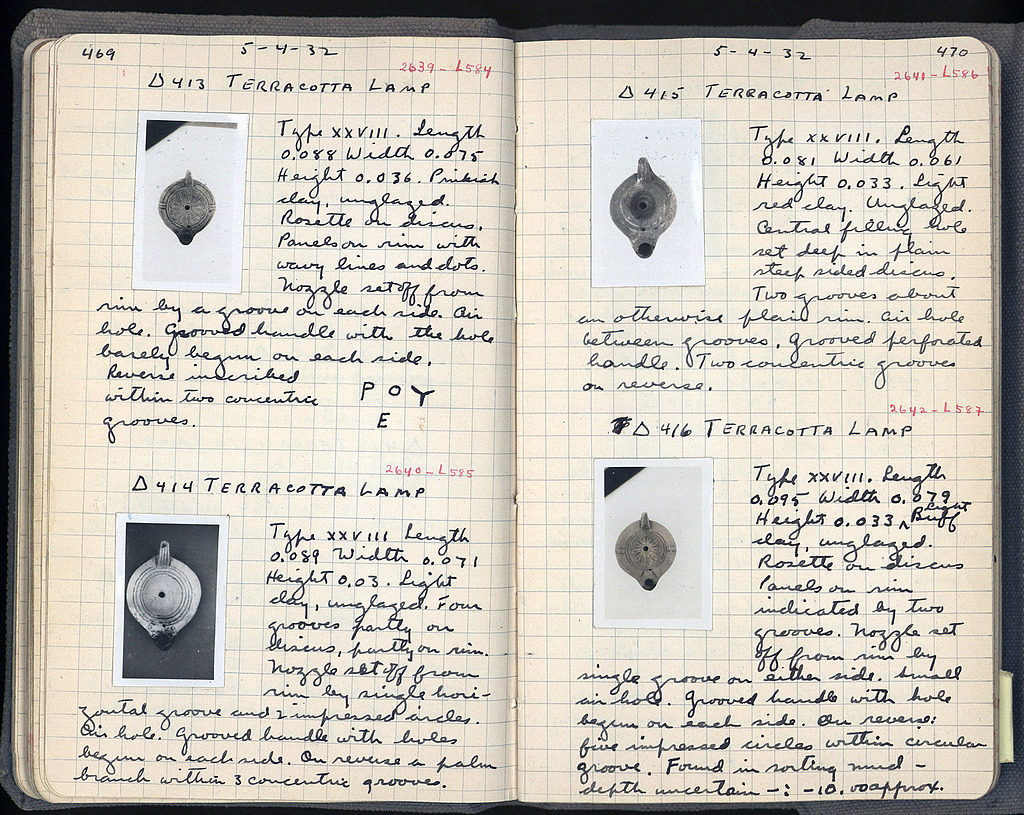 469
5-4-32
2639-L584
Δ 413 TERRACOTTA LAMP
Type XXVIII. Length
0.088 Width 0.075
Height 0.036. Pinkish
clay, unglazed.
Rosette on discus.
Panels on rim with
wavy lines and dots.
Nozzle set off from
rim by a groove on each side. Air
hole. Grooved handle with the hole
barely begun on each side.
Reverse inscribed
within two concentric
grooves.
P O Y
E
2640-L585
Δ 414 TERRACOTTA LAMP
Type XXVIII Length
0.089 Width 0.071
Height 0.03. Light
clay, unglazed. Four
grooves partly on
discus, partly on rim.
Nozzle set off from
rim by single hori-
zontal groove and 2 impressed circles.
Air hole. Grooved handle with holes
begun on each side. On reverse a palm
branch within 3 concentric grooves.
5-4-32
470
2641-L586
Δ 415 TERRACOTTA LAMP
Type XXVIII. Length
0.081 Width 0.061
Height 0.033. Light
red clay. Unglazed.
Central filling hole
set deep in plain
steep sided discus.
Two grooves about
an otherwise plain rim. Air hole
between grooves. Grooved perforated
handle. Two concentric grooves
on reverse.
2642-L587
Δ 416 TERRACOTTA LAMP
Type XXVIII. Length
0.095 Width 0.079
Height 0.033 ^ Light Buff
clay, unglazed.
Rosette on discus
Panels on rim
indicated by two
grooves. Nozzle set
off from rim by
single groove on either side. Small
air hole. Grooved handle with hole
begun on each side. On reverse:
five impressed circles within circular
groove. Found in sorting mud -
depth uncertain -: -10.00 approx.